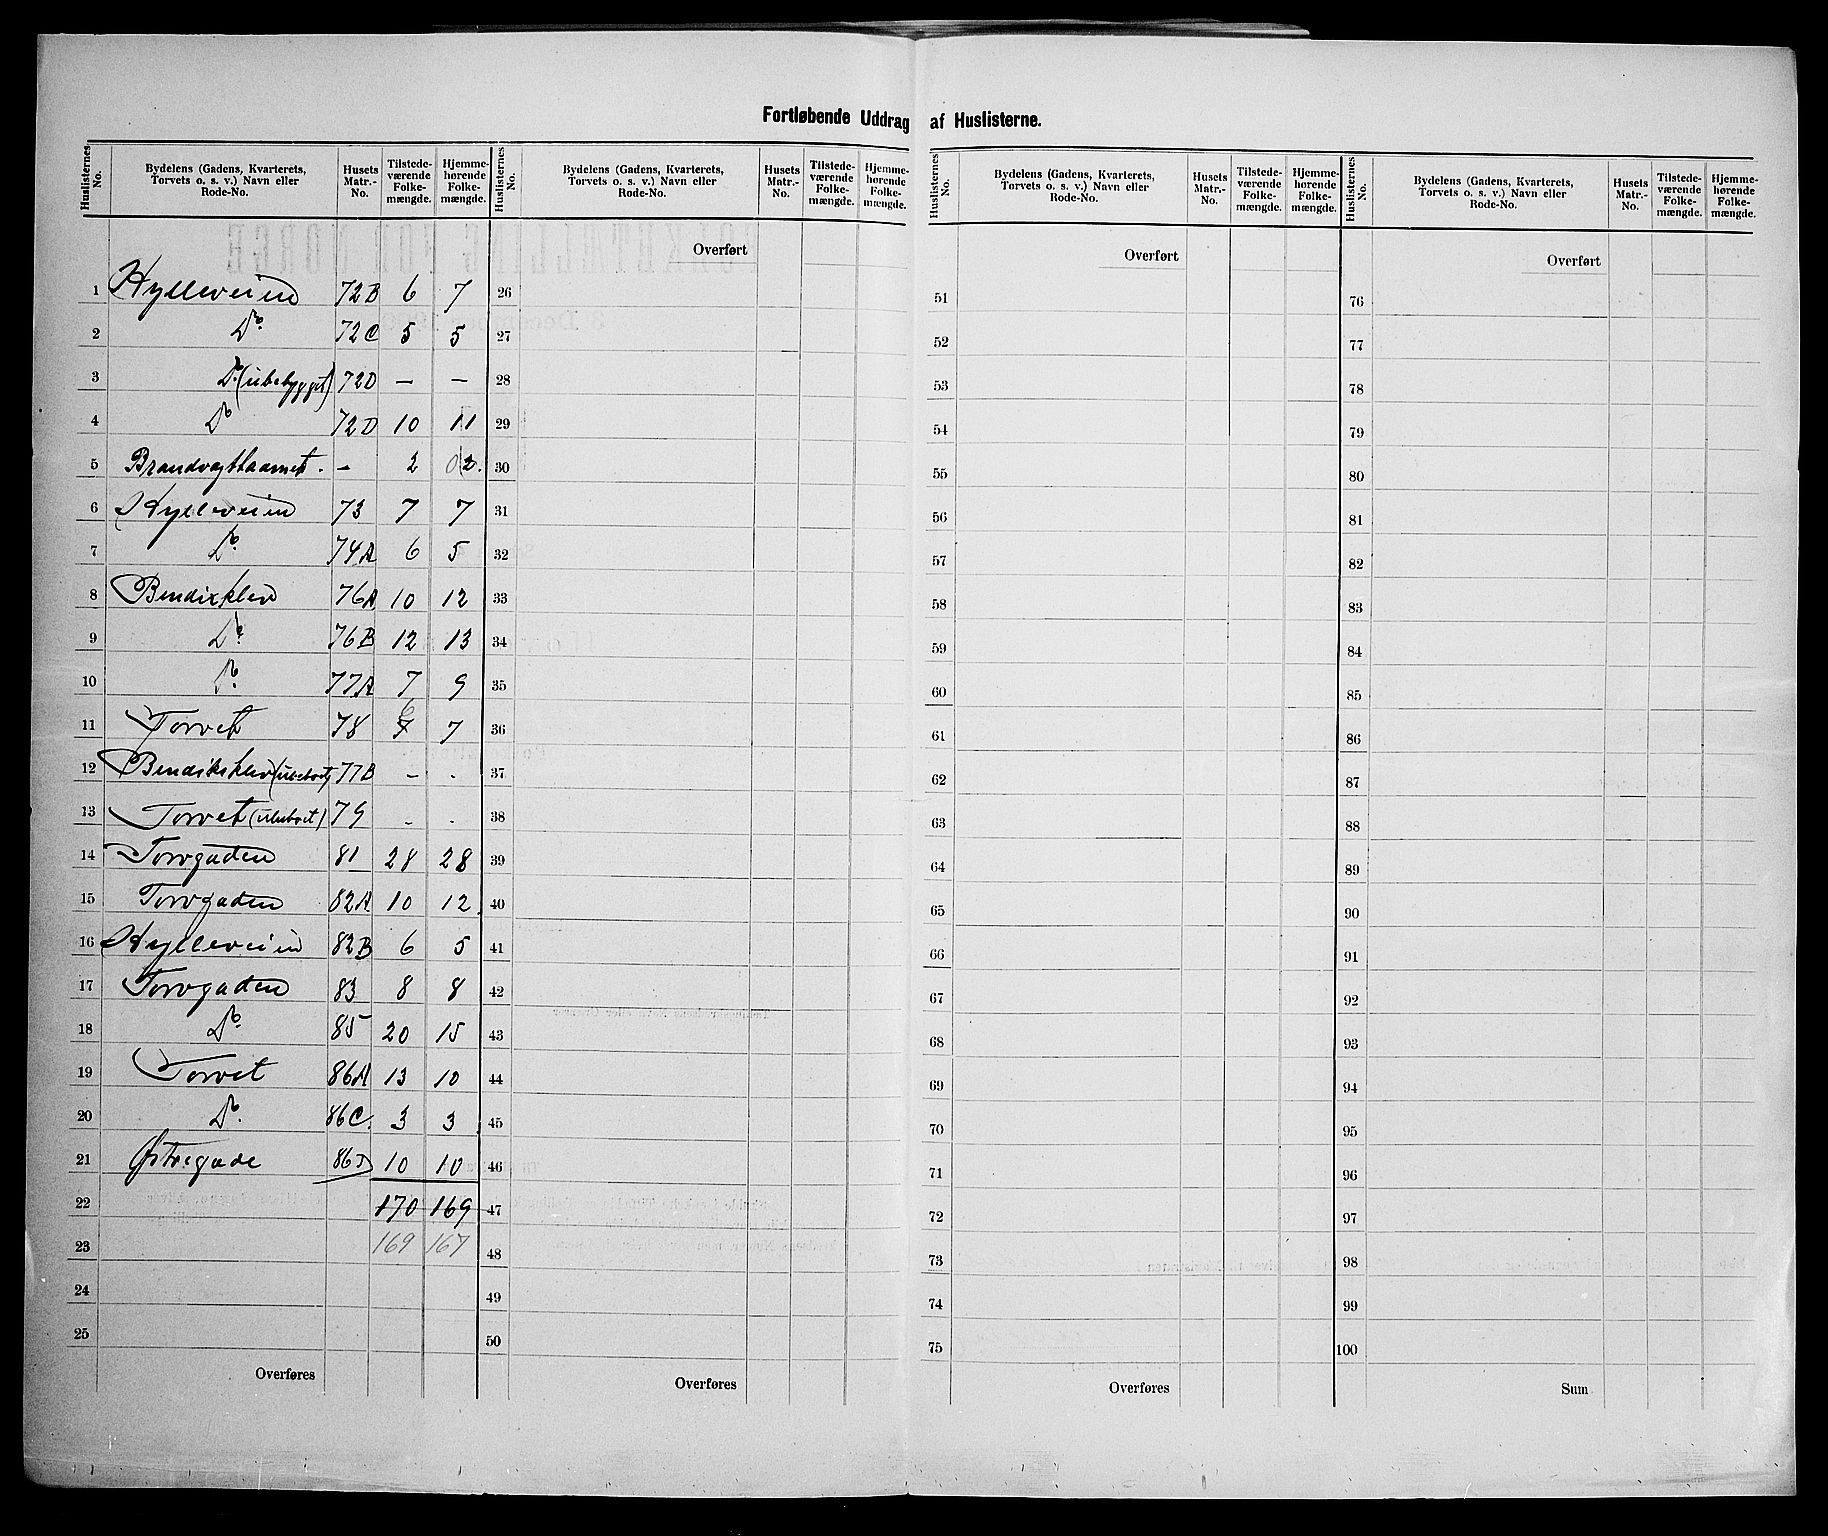 Fortløbende Uddrag af Huslisterne.
Huslisternes No. | Bydelens (Gadens, Kvarterets, Torvets o. s. v.) Navn eller Rode-No. | Husets Matr.-No. | Tilstedeværende Folkemængde. | Hjemmehørende Folkemængde. | Huslisternes No. | Bydelens (Gadens, Kvarterets, Torvets o. s. v.) Navn eller Rode-No. | Husets Matr.-No. | Tilstedeværende Folkemængde. | Hjemmehørende Folkemængde. | Huslisternes No. | Bydelens (Gadens, Kvarterets, Torvets o. s. v.) Navn eller Rode-No. | Husets Matr.-No. | Tilstedeværende Folkemængde. | Hjemmehørende Folkemængde. | Huslisternes No. | Bydelens (Gadens, Kvarterets, Torvets o. s. v.) Navn eller Rode-No. | Husets Matr.-No. | Tilstedeværende Folkemængde. | Hjemmehørende Folkemængde.
Overført Overført Overført
1 Hylleveien 72B 6 7 26 51 76
2 Do. 72C 5 5 27 52 77
3 Do. (ubebygget) 72D — — 28 53 78
4 Do 72D 10 11 29 54 79
5 Brandvagttaarnet. - 2 0 2. 30 55 80
6 Hylleveien 73 7 7 31 56 81
7 Do. 74A 6 5 32 57 82
8 Bendixklev 76A 10 12 33 58 83
9 Do. 76B 12 13 34 59 84
10 Do. 77A 7 9 35 60 85
11 Torvet 78 7 6 7 36 61 86
12 Bendiksklev (ubeboet) 77B - - 37 62 87
13 Torvet (ubeboet) 79 - - 38 63 88
14 Torvgaden 81 28 28 39 64 89
15 Torvgaden 82A 10 12 40 65 90
16 Hylleveien 82B 6 5 41 66 91
17 Torvgaden 83 8 8 42 67 92
18 Do. 85 20 15 43 68 93
19 Torvet 86A 13 10 44 69 94
20 Do. 86C. 3 3 45 70 95
21 Østregade 86D 10 10 46 71 96
22 170 169 47 72 97
23 169 167 48 73 98
24 49 74 99
25 50 75 100
Overføres Overføres Overføres Sum